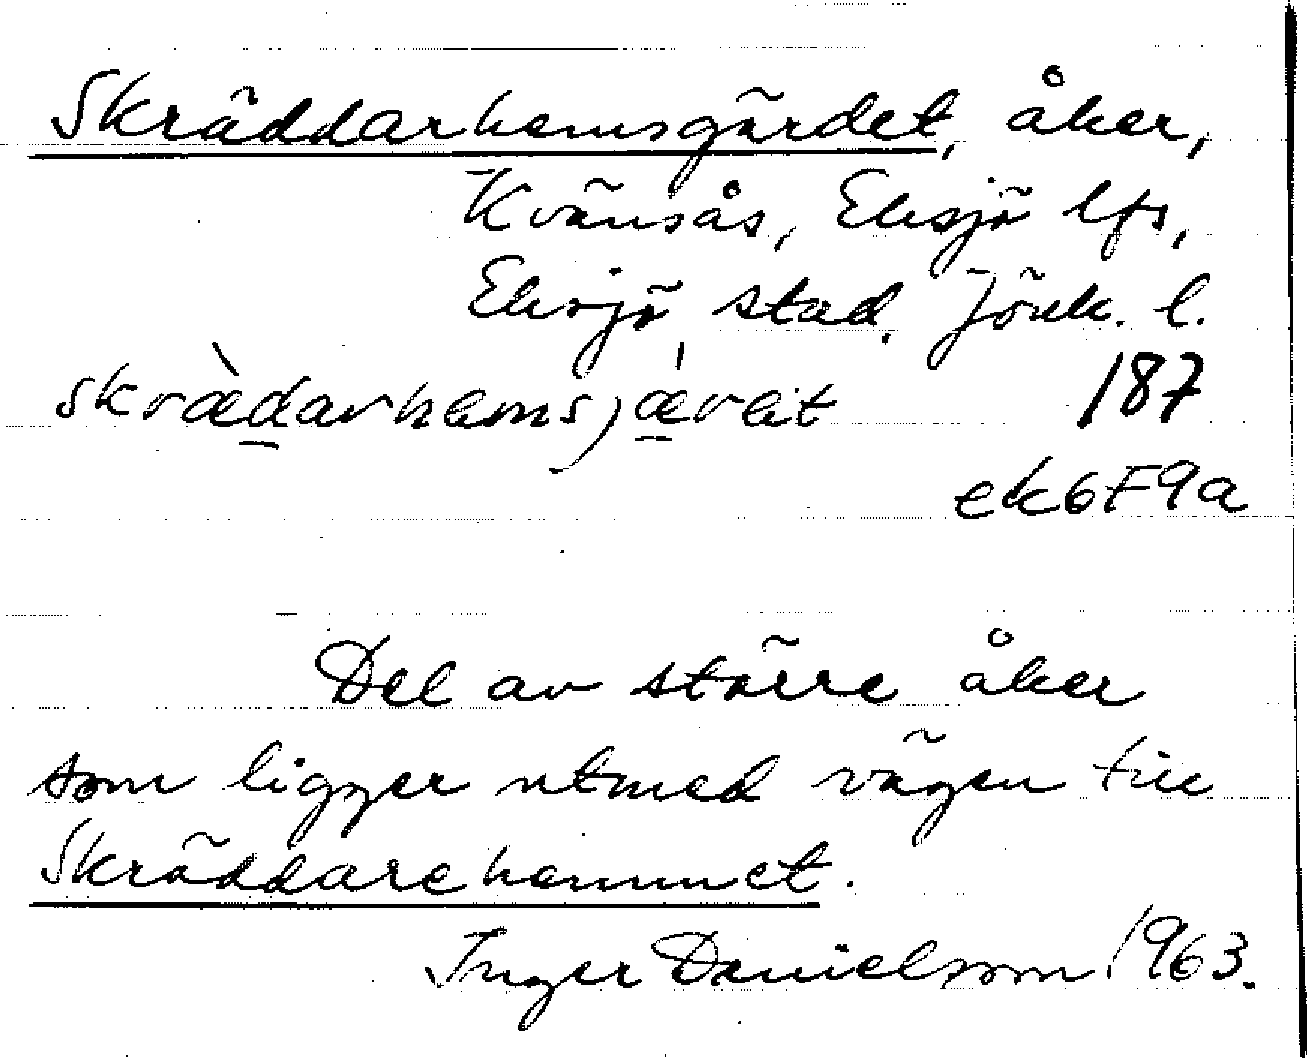 Skräddarhemsgärdet, åker,
Kvänsås, Eksjö lfs,
Eksjö stad, Jönk. l.
skræ̀darhemsjǽrət 187
ek6F9a
Del av större åker
som ligger utmed vägen till
Skräddarehemmet.
Inger Danielsson 1963.